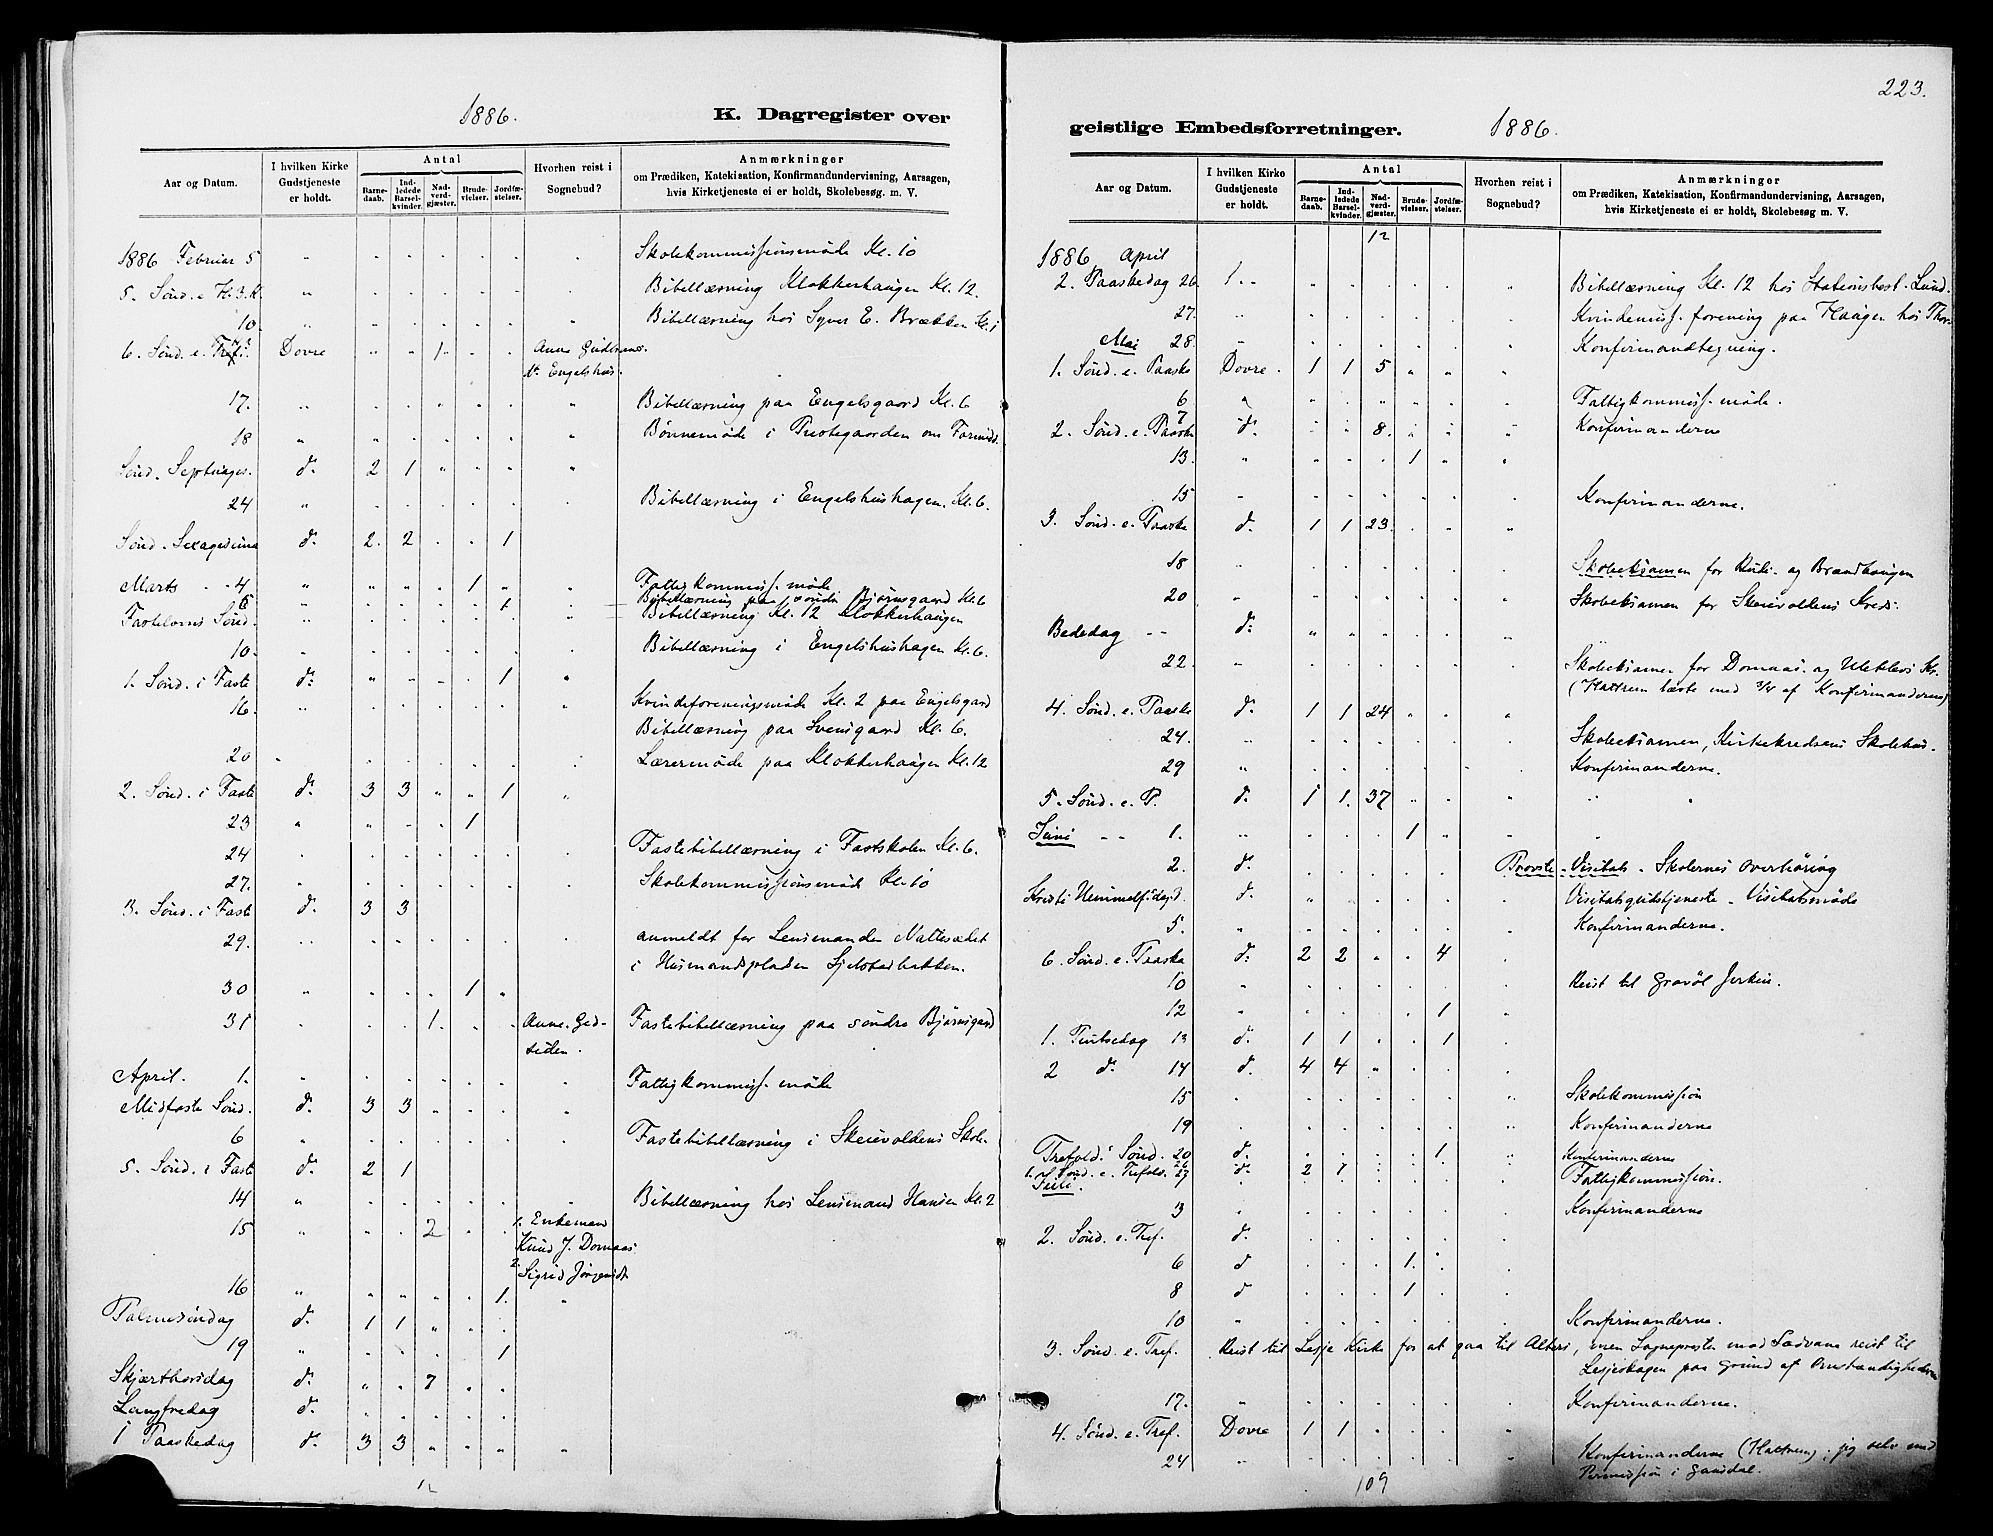 1886.
K. Dagregister over
Aar og Datum.
I hvilken Kirke Gudstjeneste er holdt.
Antal
Barnedaab.
Indledede Barselkvinder.
Nadverdgjæster.
Brudevielser.
Jordfæstelser.
Hvorhen reist i Sognebud?
Anmærkninger
om Prædiken, Katekisation, Konfirmandundervisning, Aarsagen,
hvis Kirketjeneste ei er holdt, Skolebesøg. m. V.
1886 Februar 5 Skolekommissionsmöde Kl. 10
5. Sönd. e. H. 3. K. Bibellæsning Klokkerhaugen Kl. 12.
10. Bibellæsning hos Syver E. Brækken Kl. 1
6. Sönd. e. Dovre 1 Anne
Engelshus.
17. Bibellæsning paa Engelsgaard Kl. 6
18 Bönnemöde i Prestegaarden om
Sönd. Septuages. d. 2 1
24 Bibellæsning i Engelshushagen. Kl. 6.
Sönd. Sexagesima d. 2. 2 1
Marts 4 1 Fattigkommiss. möde
6 1 Bibellæsning paa söndre Bjørnsgaard Kl. 6
Fastelavns Sönd. Bibellæsning Kl. 12 Klokkerhaugen
10. Bibellæsning i Engelshushagen Kl. 6.
1. Sönd. i Faste d. 1
16. Kvindeforeningsmöde Kl. 2 paa Engelsgard
Bibellæsning paa Svensgaard Kl. 6.
20 Lærermöde paa Klokkerhaugen Kl. 12
2. Sönd. i Faste d. 3 3 1
23 1
24 Fastebibellæsning i Fastskolen Kl. 6.
27. Skolekommissionsmöde Kl. 10
3. Sönd. i Faste d. 3 3
29. anmeldt for Lensmanden Nattesædet
i Husmandspladsen Sjelstadbakken.
30 1
31 1. Anne
Fastebibellæsning paa söndre Bjørnsgard
April. 1. Fattigkommiss. möde
Midfaste Sönd. d. 3 3
6 Fastebibellæsning i Skeievoldens Skole.
5. Sönd. i Faste d. 2 1
14 Bibellæsning hos Lensmand Hansen Kl. 2
15 2 1. Enkemand
Knud J. Domaas
2. Sigrid
16 1.
Palmesöndag d. 1 1
19 1
Skjærthorsdag d. 7
Langfredag d.
1 Paaskedag d. 3 3
12
223.
geistlige Embedsforretninger.
1886.
Aar og Datum.
I hvilken Kirke Gudstjeneste er holdt.
Antal
Barnedaab.
Indledede Barselkvinder.
Nadverdgjæster.
Brudevielser.
Jordfæstelser.
Hvorhen reist i Sognebud?
Anmærkninger
om Prædiken, Katekisation, Konfirmandundervisning, Aarsagen,
hvis Kirketjeneste ei er holdt, Skolebesøg m. V.
12
1886 April
2. Paaskedag 26 Bibellæsning Kl. 12 hos Stationsbest. Lund.
27. Kvindemiss. forening paa Haagen hos
Mai 28. Konfirmandtegning.
1. Sönd. e. Paaske Dovre. 1 1 5
6 Fattigkommiss. möde.
7 Konfirmanderne
2. Sönd. e. Paaske d. 8.
13. 1
15 Konfirmanderne.
3. Sönd. e. Paaske d. 1 1 23.
18 Skoleksamen for og Brandhaugen
20 Skoleksamen for Skeievoldens Kreds.
Bededag d.
22. Skoleksamen for Domaas. og
(Hattrem læste med 3/4 af Konfirmanderne)
4. Sönd. e. Paaske d. 1 1 24
24. Skoleksamen, Kirkekredsens
29 Konfirmanderne.
5. Sönd. e. P. d. 1 1. 37
Juni 1. 1
2. d. Provste-Visitats. Skolernes Overhöring
Kristi Himmelf.dag 3 d. Visitatsgudstjeneste. Visitatsmöde
5. Konfirmanderne.
6. Sönd. e. Paaske d. 2 2 4
10 Reist til Gravöl Jerkin.
12 1
1. Pintsedag 13 d. 1 1 1
2 d. 14 d. 4 4
15 Skolekommission
19 Konfirmanderne
Trefold. Sönd. 20 d. 1
26 Konfirmanderne
1. Sönd. e. Trefold. 27 d. 2 1 Fattigkommission.
Juli.
3 Konfirmanderne
2. Sönd. e. Tref. d.
6 d 1.
8 d 1
10 Konfirmanderne.
3. Sönd. e. Tref. Reist til Lesje Kirke for at gaa til Alters, men Sognepresten mod Sædvane reist til
Lesjeskogen paa Grund af Omstændighederne
17. Konfirmanderne.
4. Sönd. e. Tref. Dovre 1 1
24 Konfirmanderne (Hattrem); jeg selv med
Permission i Gausdal.
109